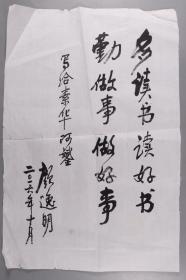 多读书读好书
勤做事做好事
写给素华阿鐢
顾逸明
二〇一六年十月